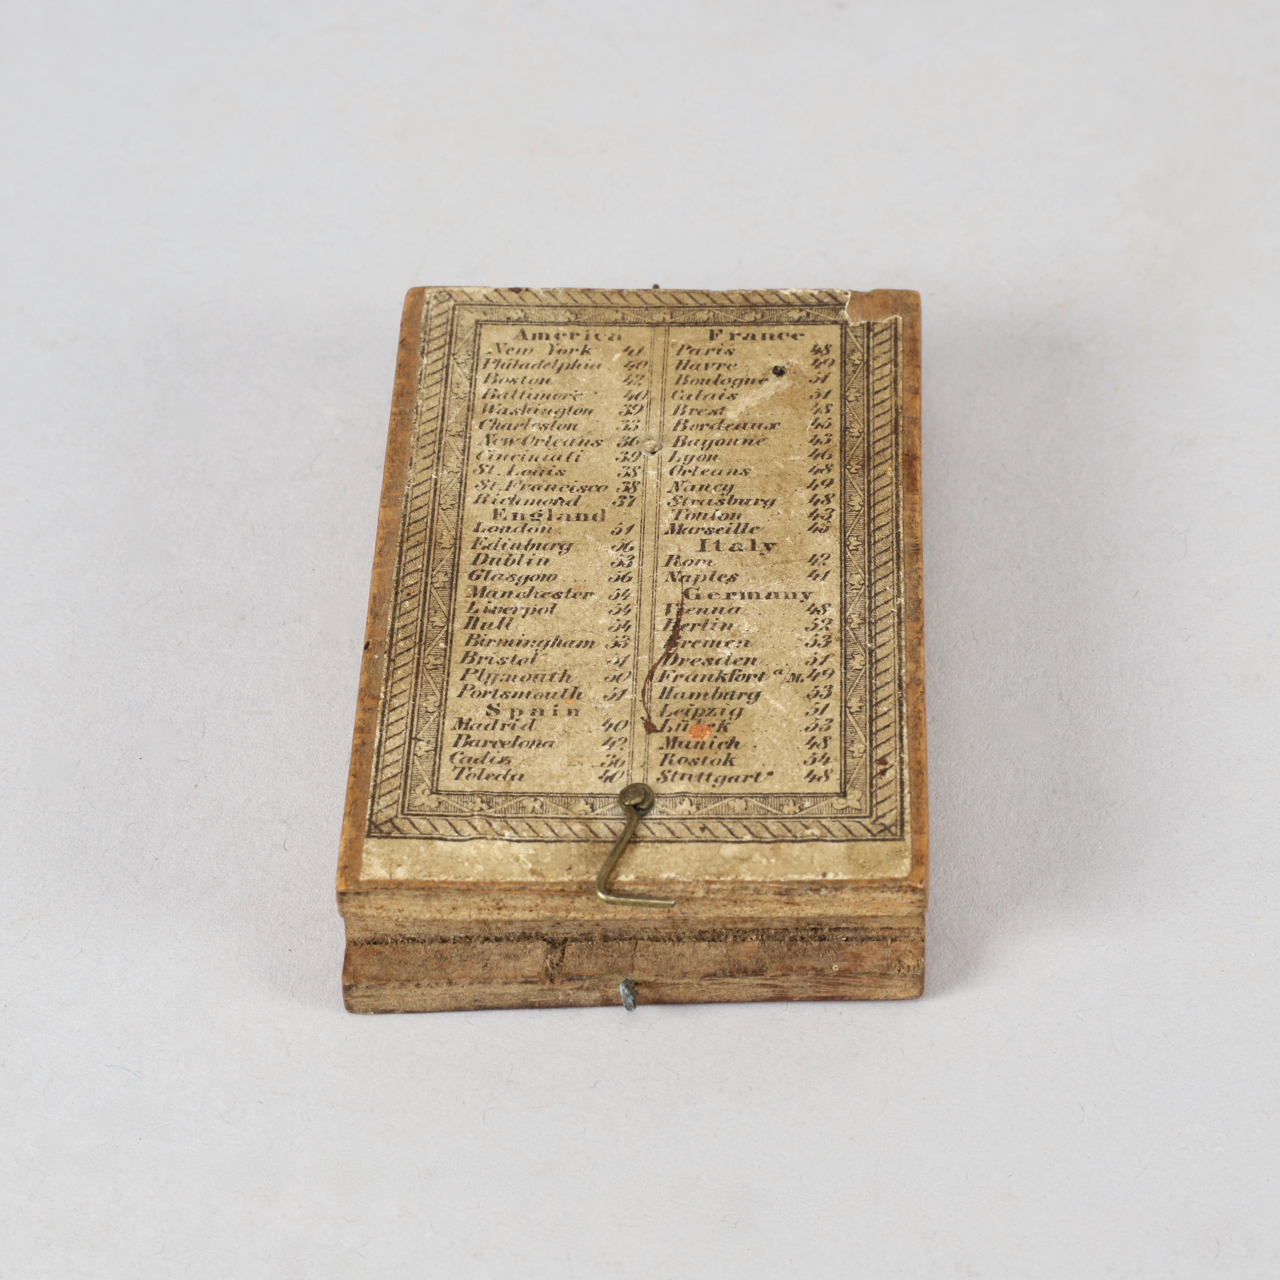 America
New York 41
Philadelphia 40
Boston 42
Baltimore 40
Washington 39
Charleston 33
New Orleans 36
Cincinnati 39
St. Louis 38
St. Francisco 38
Richmond 37
England
London 51
Edinburg 56
Dublin 53
Glasgow 56
Manchester 54
Liverpol 54
Hull 54
Birmingham 53
Bristol 51
Plymouth 50
Portsmouth 51
Spain
Madrid 40
Barcelona 42
Cadiz 36
Toleda 40
France
Paris 48
Havre 49
Boulogne 51
Calais 51
Brest 48
Bordeaux 45
Bayonne 43
Lyon 46
Orleans 48
Nancy 49
Strasburg 48
Toulon 43
Marseille 43
Italy
Rom 42
Naples 41
Germany
Vienna 48
Berlin 52
Bremen 53
Dresden 51
Frankfort a/M. 49
Hamburg 53
Leipzig 51
Lübek 53
Munich 48
Rostok 54
Stuttgart 48